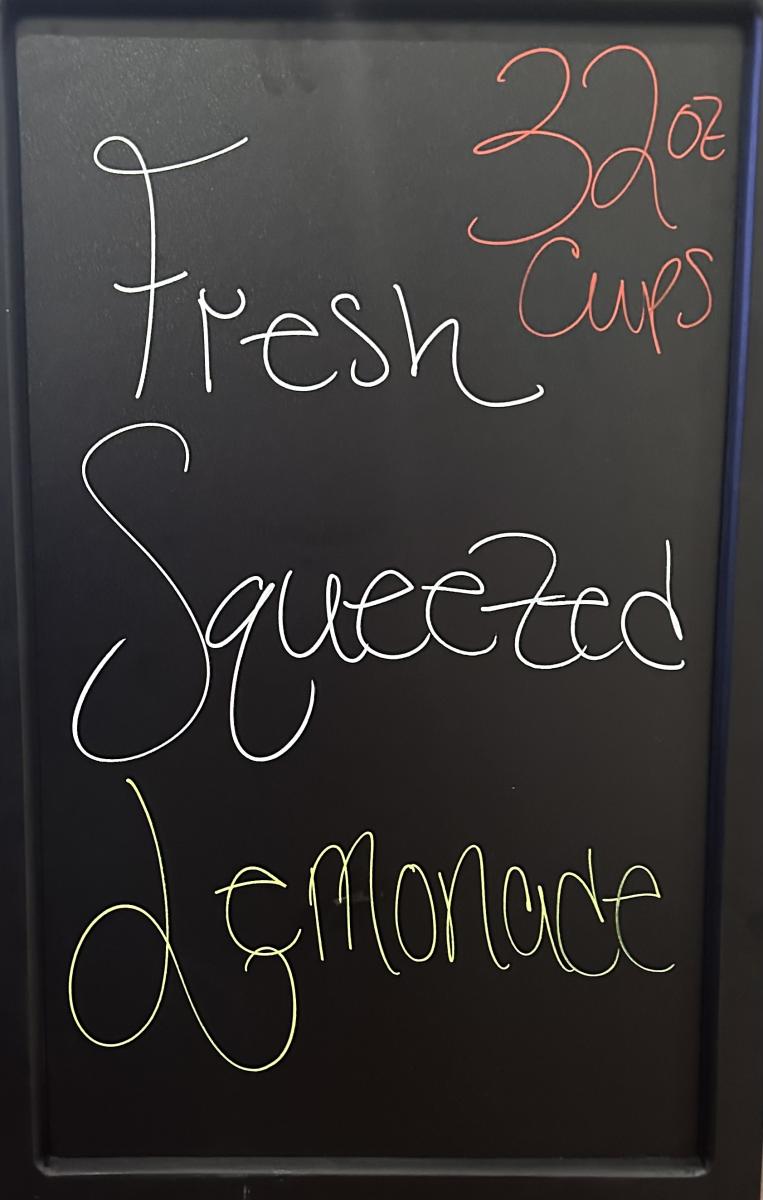 32 oz
Cups
Fresh
Squeezed
Lemonade